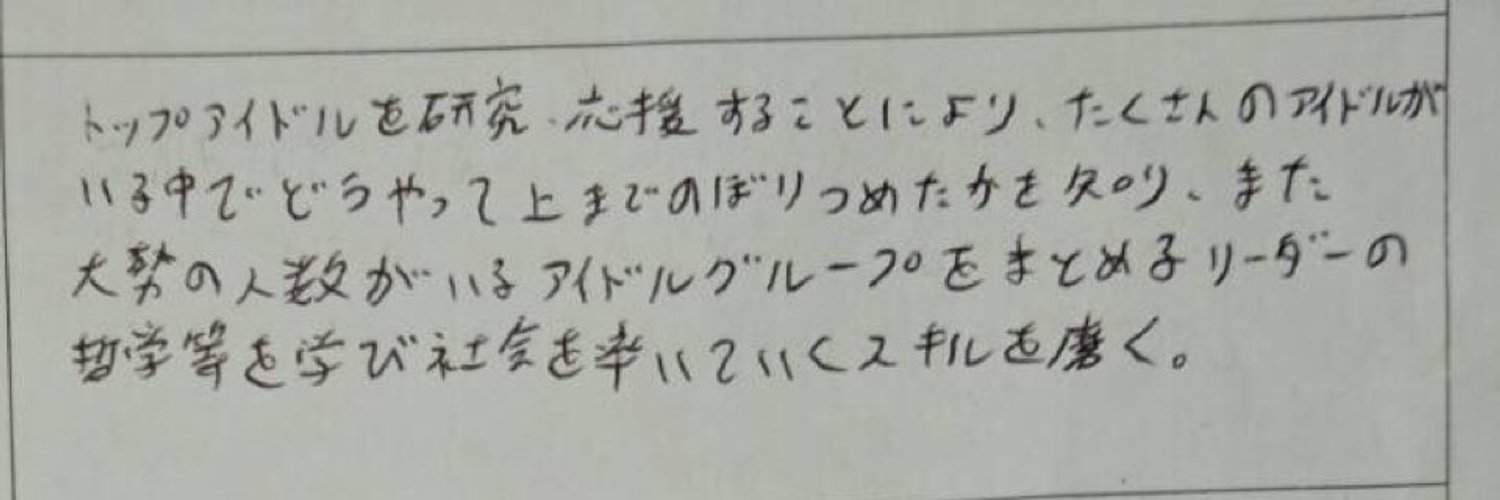 トップアイドルを研究、応援することにより、たくさんのアイドルが
いる中でどうやって上までのぼりつめたかを知り、また
大勢の人数がいるアイドルグループをまとめるリーダーの
哲学等を学び社会を率いていくスキルを磨く。